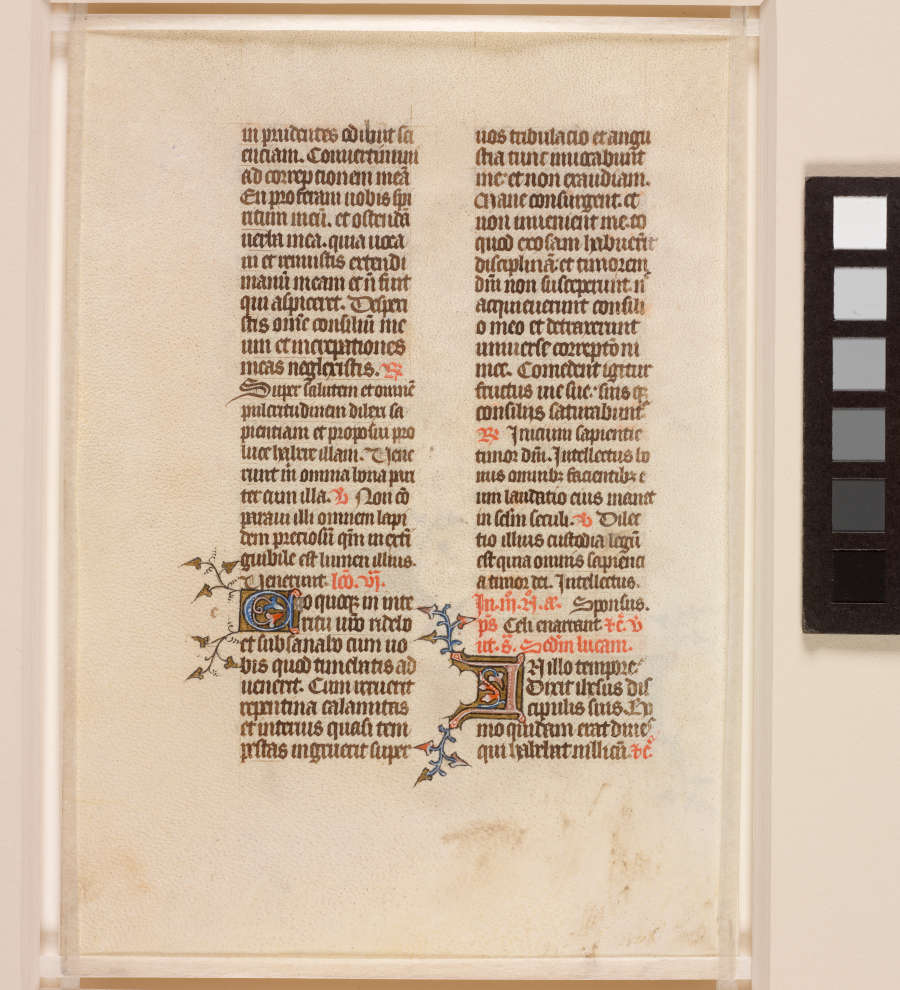 in prudentes odibūt sci
enciam. Conuertimini
ad correptionem meā
En proferam uobis spi
ritum meū. et ostendā
uerba mea. quia uoca
ui et renuistis extendi
manū meam et ñ fuit
qui aspiceret. Despexi
stis om̄e consiliū me
um et increpationes
meas neglexistis. R
Super salutem et omnē
pulcritudinem dilexi sa
pientiam et proposui pro
luce habere illam. Vene
runt m̄ omnia bona pari
ter cum illa. V Non cō
paraui illi omnem lapi
dem preciosū qm̄ inexti
guibile est lumen illius.
Venerunt. lcō. vj.
Ego quoq; in inte
ritu ur̄o ridebo
et subsanabo cum uo
bis quod timebatis ad
uenerit. Cum irruerit
repentina calamitas
et interitus quasi tem
pestas ingruerit super
uos tribulacio et angu
stia tunc inuocabunt
me. et non exaudiam.
Mane consurgent. et
non inuenient me. eo
quod exosam habuerīt
disciplinā. et timorem
dn̄i non susceperunt. n̄
acquieuerunt consili
o meo et detraxerunt
uniuerse correptōni
mee. Comedent igitur
fructus uie sue. suis q;
consiliis saturabunt
R Inicium sapientie
timor dn̄i. Intellectus bo
nus omnibz facientibz e
um laudatio eius manet
in sclm̄ seculi. V Dilec
tio illius custodia legū
est quia omnis sapienci
a timor dei. Intellectus.
In. iij. N. a. Sponsus.
ps Celi enarrant &c̄ V
ut. s̄. Scdm̄ lucam.
IN illo tempore
Dixit ihesus dis
cipulis suis. Ho
mo quidam erat diues
qui habebat uillicū. &c̄.